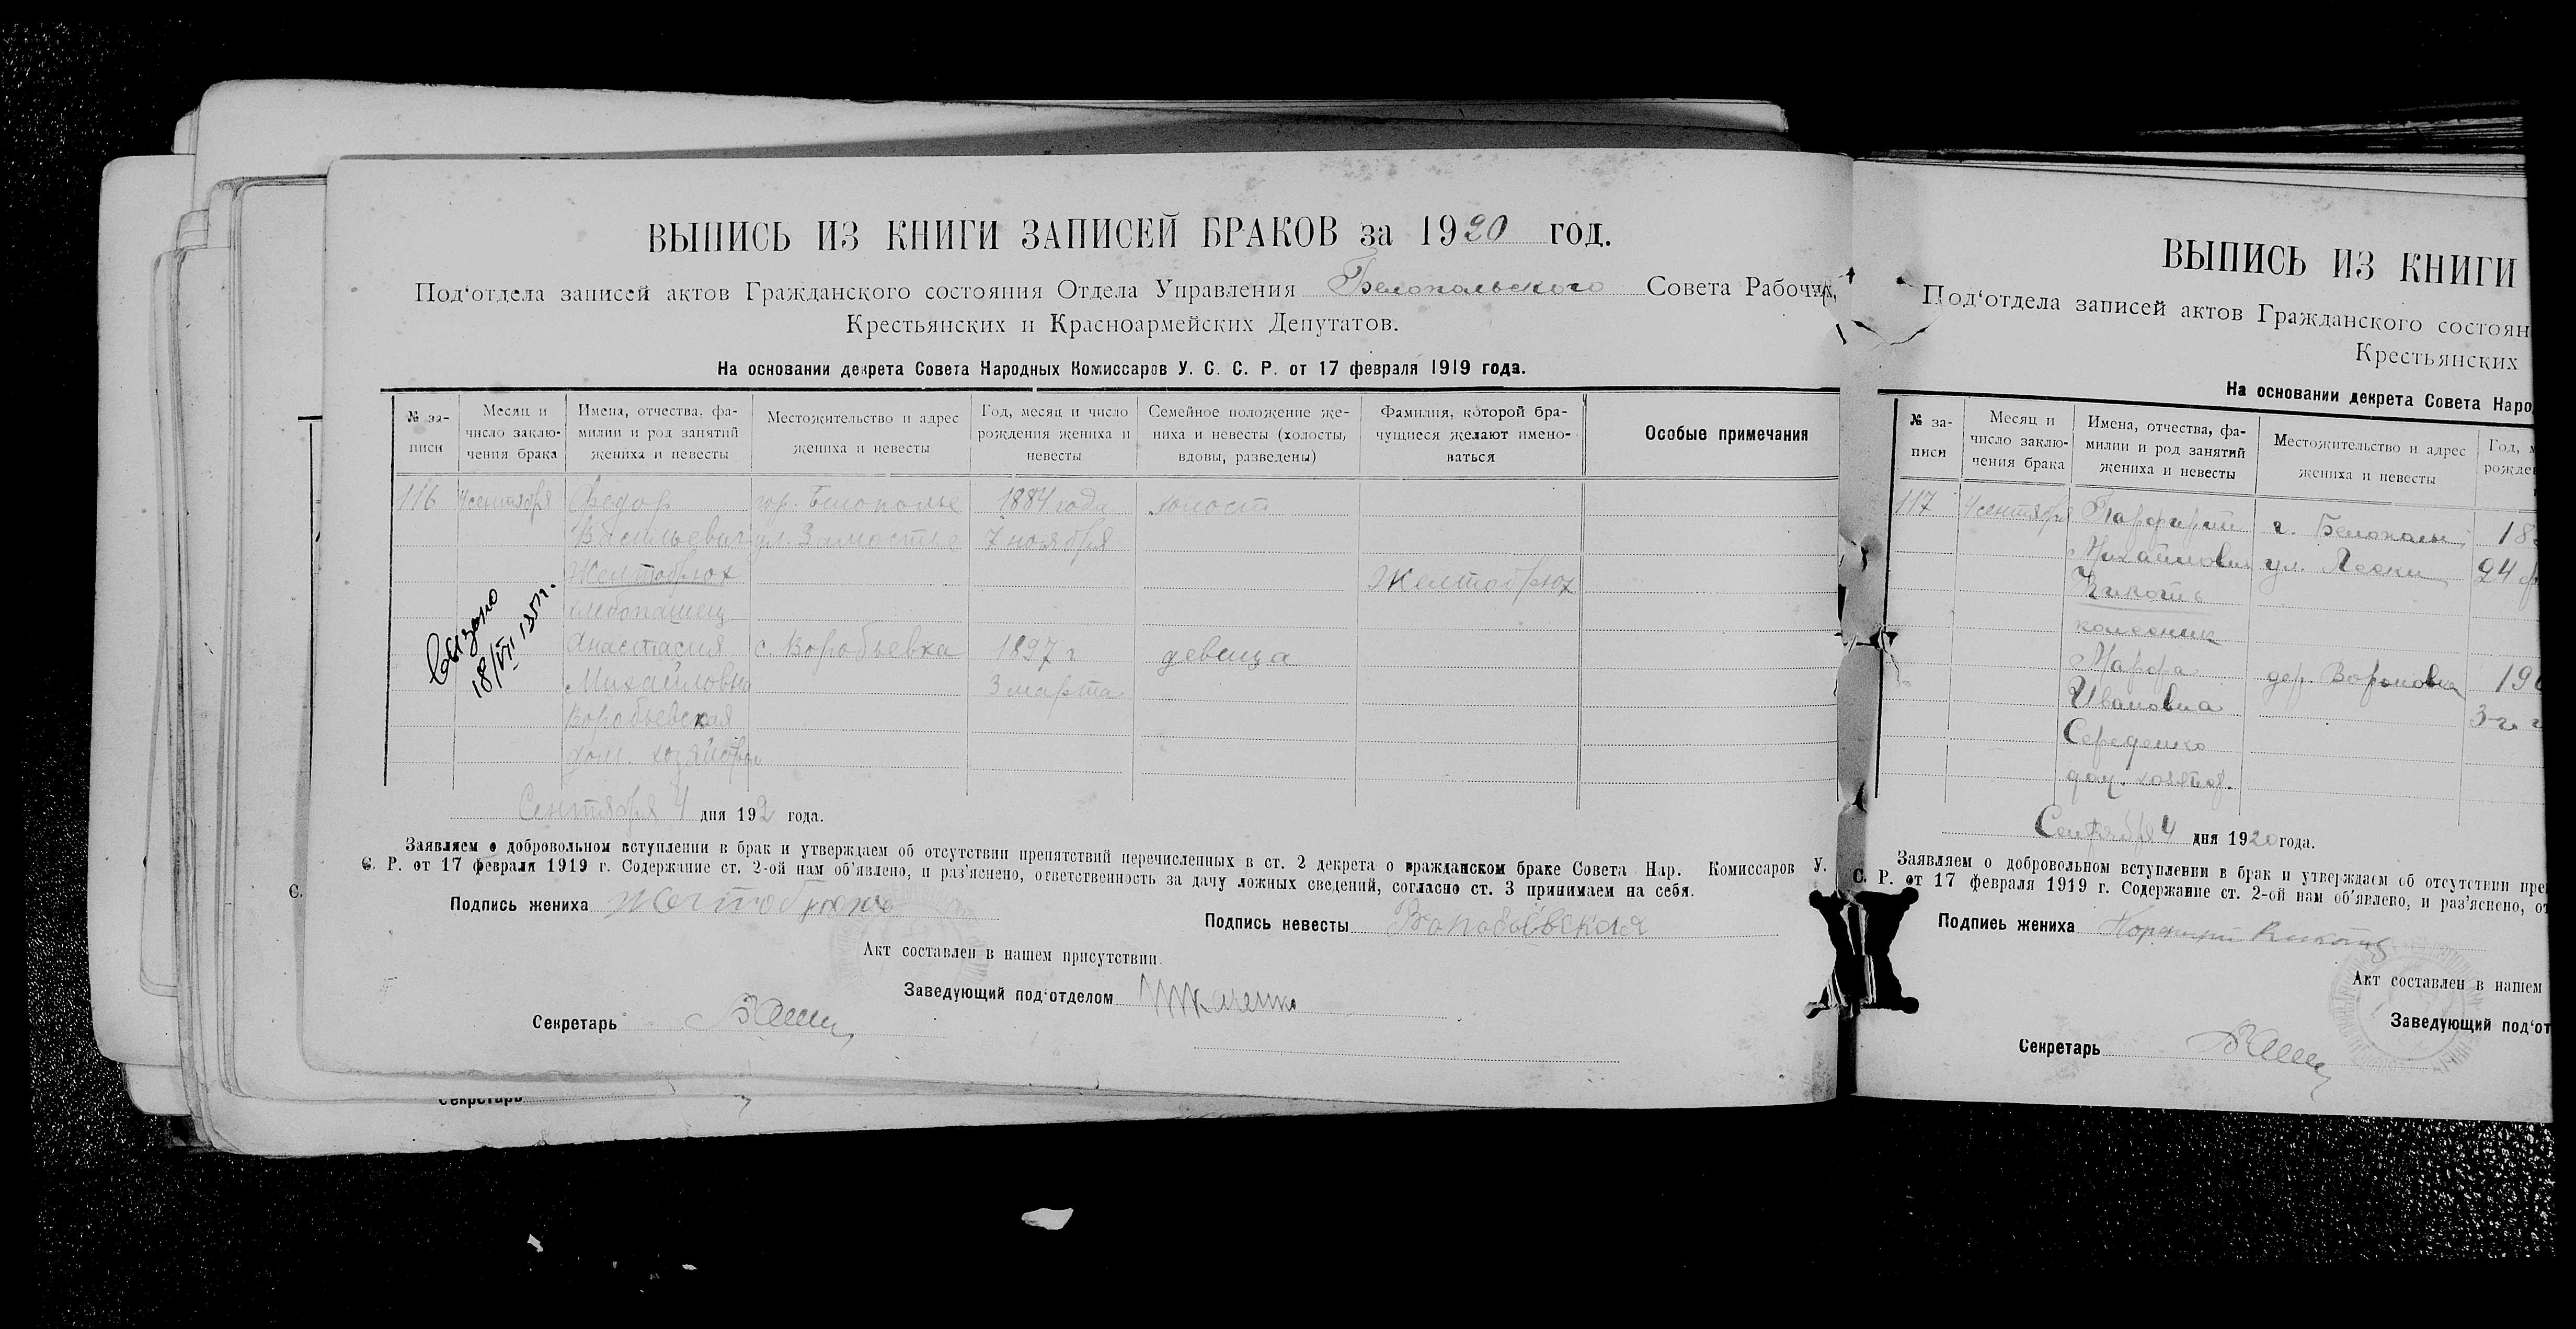 ВЫПИСЬ ИЗ КНИГИ ЗАПИСЕЙ БРАКОВ за 1920 год.
Под‘отдела записей актов Гражданского состояния Отдела Управления Белопольского Совета Рабочих,
Крестьянских и Красноармейских Депутатов.
На основании декрета Совета Народных Комиссаров У. С. С. Р. от 17 февраля 1919 года.
№ за-
писи
Месяц и
число заклю-
чения брака
Имена, отчества, фа-
милии и род занятий
жениха и невесты
Местожительство и адрес
жениха и невесты
Год, месяц и число
рождения жениха и
невесты
Семейное положение же-
ниха и невесты (холосты,
вдовы, разведены)
Фамилия, которой бра-
чущиеся желают имено-
ваться
Особые примечания
116 4 сентября Федор гор. Белополье 1884 года холост
Васильевич ул. Замостье 7 ноября
Желтобрюх Желтобрюх
хлебопашец
Анастасия с. Воробьевка 1897 г девица
Михайловна 3 марта
Воробьевская
дом. хозяйство
18/VII 1951г.
Сентября 4 дня 192 года.
Заявляем о добровольном вступлении в брак и утверждаем об отсутствии препятствий перечисленных в ст. 2 декрета о гражданском браке Совета Нар. Комиссаров У.
С. Р. от 17 февраля 1919 г. Содержание ст. 2-ой нам об‘явлено, и раз‘яснено, ответственность за дачу ложных сведений, согласно ст. 3 принимаем на себя.
Подпись жениха Желтобрюх
Подпись невесты Воробьевская
Акт составлен в нашем присутствии.
Заведующий под‘отделом Ткаченко
Секретарь
Секретарь
С.
ВЫПИСЬ ИЗ КНИГИ
Под‘отдела записей актов Гражданского состоян
Крестьянских
На основании декрета Совета Наро
№ за-
писи
Месяц и
число заклю-
чения брака
Имена, отчества, фа-
милии и род занятий
жениха и невесты
Местожительство и адрес
жениха и невесты
Год, м
рожде
117 4 сентября Парфирий г. Белополье 18
Михайлович ул. Пески 24 ф
колесник
Марфа дер. Вороновка 19
Ивановна 3-го
Середенко
дом. хозяйств.
Сентября 4 дня 1920 года.
Заявляем о добровольном вступлении в брак и утверждаем об отсутствии пре
С. Р. от 17 февраля 1919 г. Содержание ст. 2-ой нам об‘явлено, и раз‘яснено, от
Подпись жениха
Акт составлен в нашем
Заведующий под‘от
Секретарь